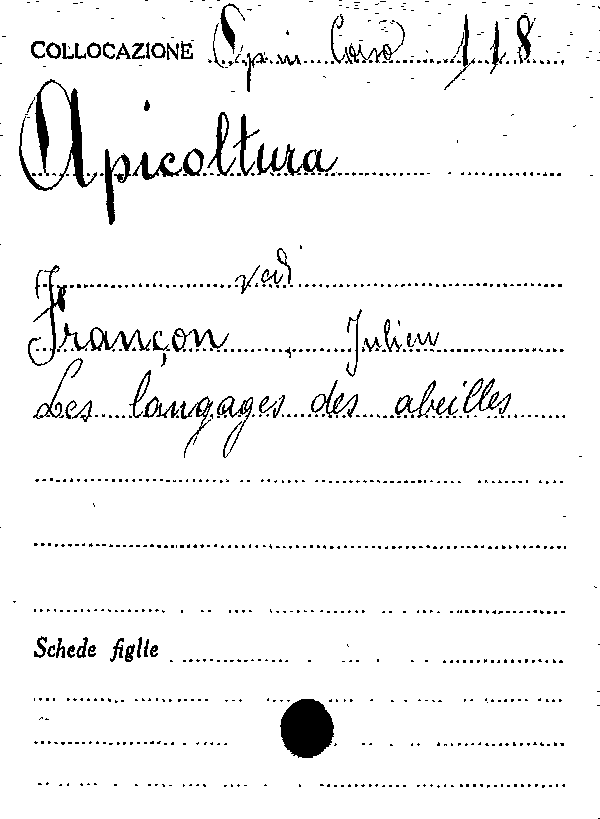 COLLOCAZIONE Op. in Corso 118
Apicoltura
vedi
Françon, Julien
Les langages des abeilles
Schede figlie